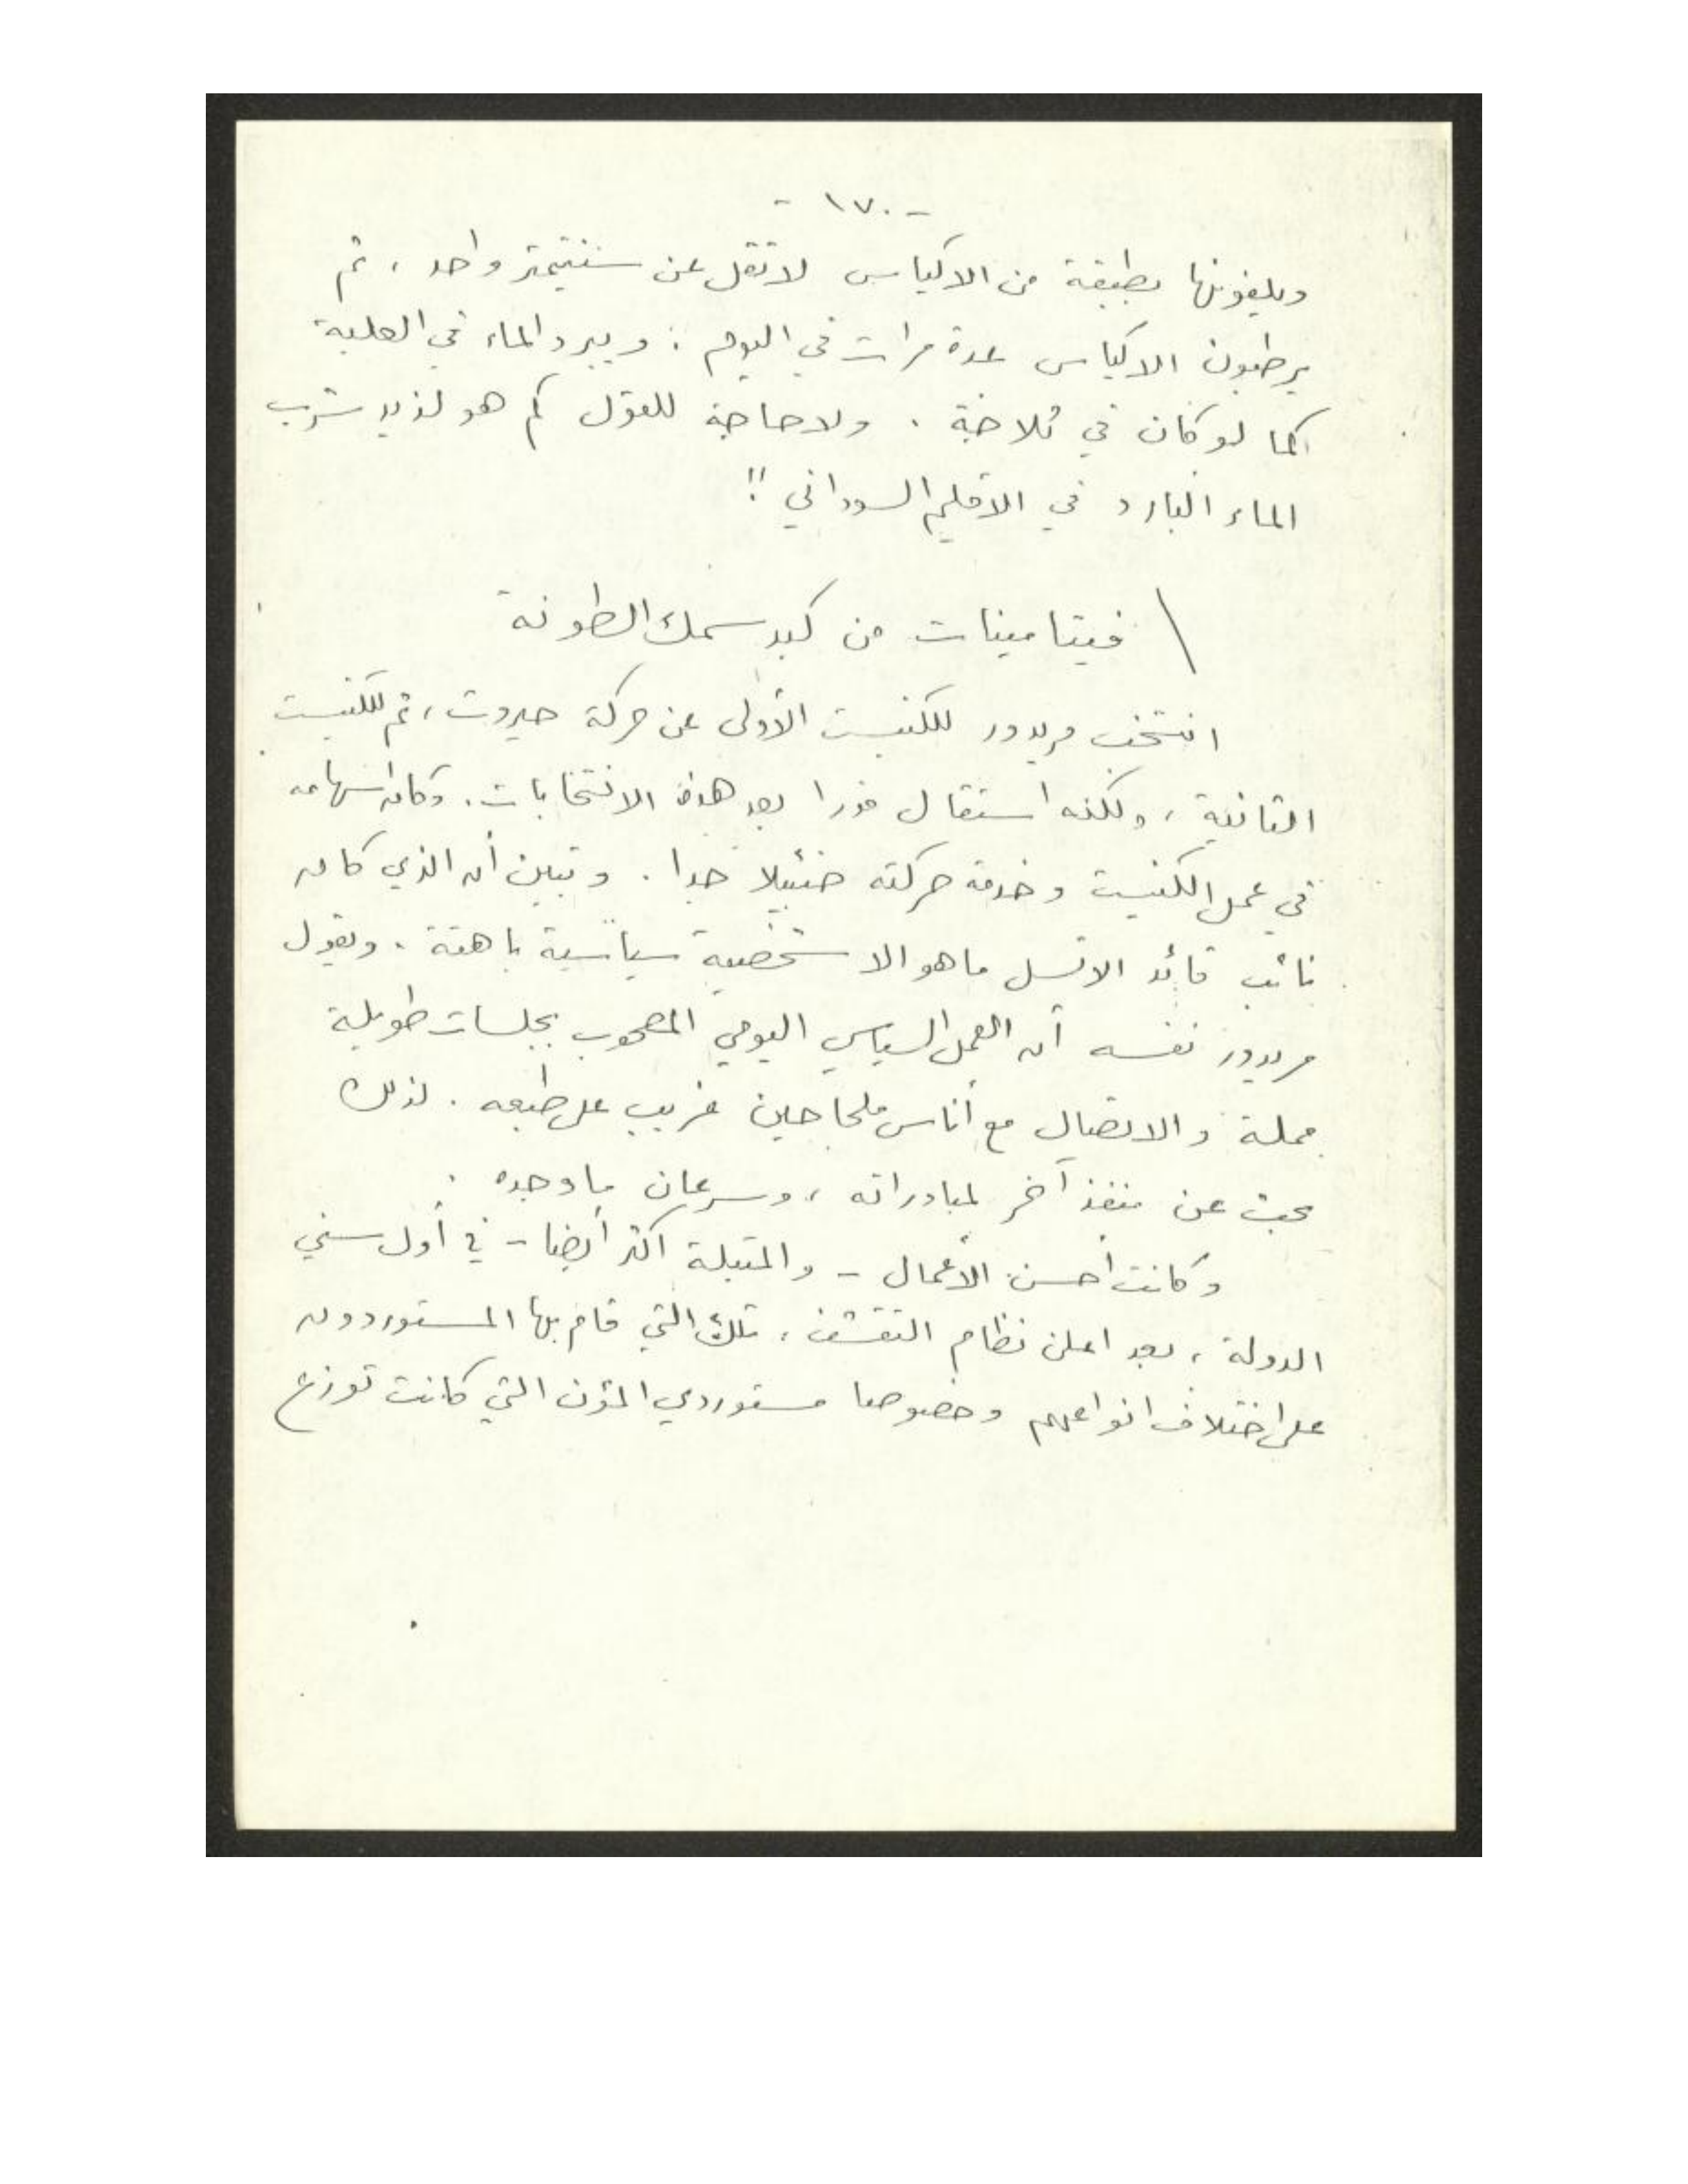 - ١٧٠ -
ويلفونها بطبقة من الاكياس لا تقل عن سنتيمتر واحد ، ثم
يرطبون الاكياس عدة مرات في اليوم : ويبرد الماء في العلبة
كما لو كان في ثلاجة . ولا حاجة للقول كم هو لذيذ شرب
الماء البارد في الاقليم السوداني !!
\ فيتامينات من كبد سمك الطونة
انتخب مريدور للكنيست الأولى عن حركة حيروت ، ثم للكنيست
الثانية ، ولكنه استقال فورا بعد هذه الانتخابات . وكان اسهامه
في عمل الكنيست وخدمة حركته ضئيلا جدا . وتبين أن الذي كان
نائب قائد الاتسل ما هو الا شخصية سياسية باهتة . ويقول
مريدور نفسه أن العمل السياسي اليومي المصحوب بجلسات طويلة
مملة والاتصال مع أناس ملحاحين غريب على طبعه . لذلك
بحث عن منفذ آخر لمبادراته ، وسرعان ما وجده .
وكانت أحسن الأعمال - والمتبلة اكثر أيضا - في أول سني
الدولة ، بعد اعلن نظام التقشف ، تلك التي قام بها المستوردون
على اختلاف انواعهم وخصوصا مستوردي المؤن التي كانت توزع